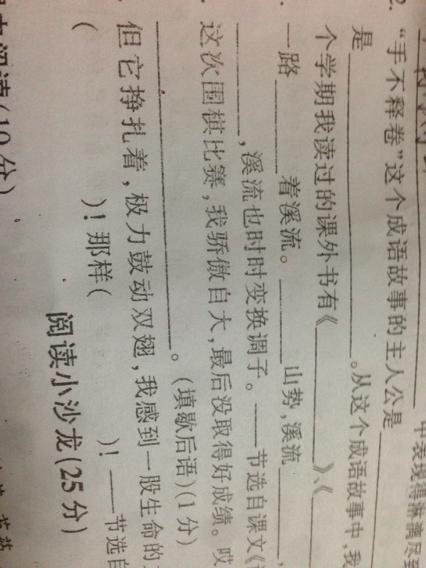 中表现得淋漓尽
2. “手不释卷”这个成语故事的主人公是
是 。从这个成语故事中,我
个学期我读过的课外书有《 》、《
一路 着溪流。 山势,溪流 ,
,溪流也时时变换调子。——节选自课文《
这次围棋比赛,我骄傲自大,最后没取得好成绩。哎
。(填歇后语)(1分)
但它挣扎着,极力鼓动双翅,我感到一股生命的
( )!那样( )!——节选自
阅读小沙龙(25分)
阅读(10分)